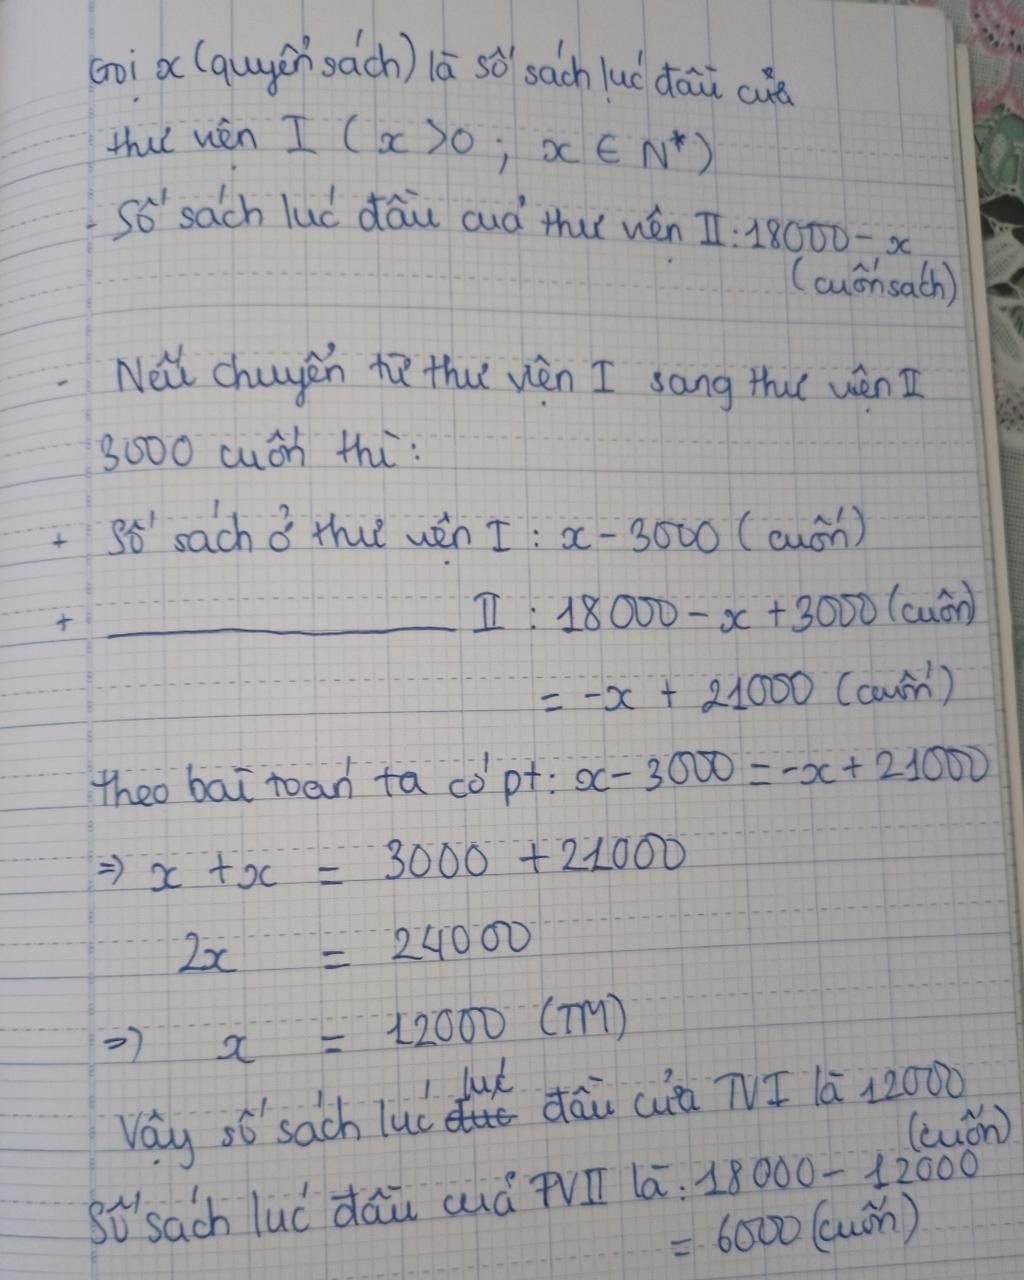 Gọi x (quyển sách) là số sách lúc đầu của
thư viện I ( x > 0 ; x ∈ N* )
- Số sách lúc đầu của thư viện II : 18000 - x
(cuốn sách)
- Nếu chuyển từ thư viện I sang thư viện II
3000 cuốn thì :
+ Số sách ở thư viện I : x - 3000 ( cuốn )
+ ________ II : 18000 - x + 3000 (cuốn)
= -x + 21000 (cuốn)
theo bài toán ta có pt : x - 3000 = -x + 21000
=> x + x = 3000 + 21000
2x = 24000
=> x = 12000 (TM)
Vậy số sách lúc lúc đầu của TVI là 12000
(cuốn)
Số sách lúc đầu của TVII là : 18000 - 12000
= 6000 (cuốn)